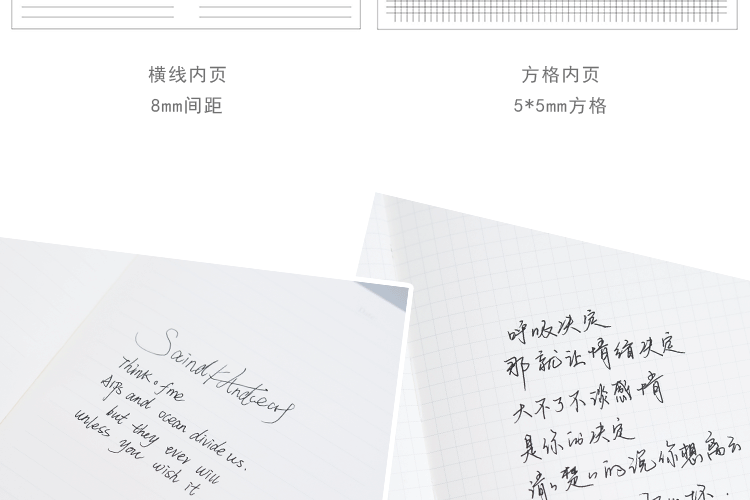 横线内页
8mm间距
方格内页
5*5mm方格
Think of me
Alps and ocean divide us.
but they ever will
unless you wish it
呼吸决定
那就让情绪决定
大不了不谈感情
是你的决定
清清楚楚的说你想离